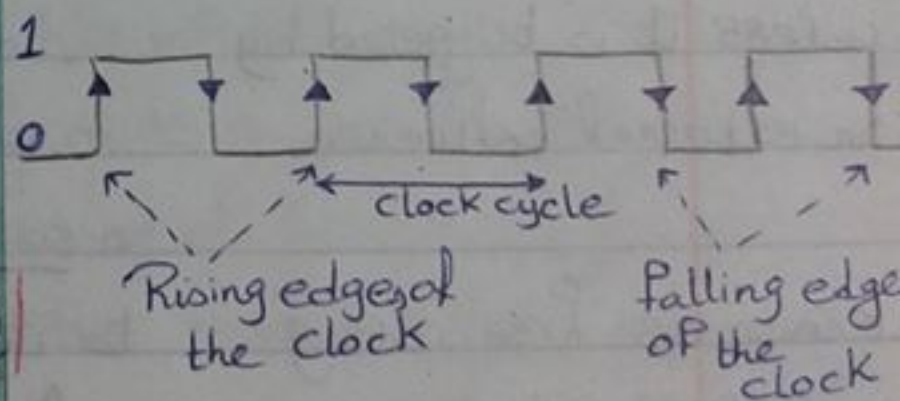 1
0
clock cycle
Rising edges of
the clock
falling edge
of the
clock